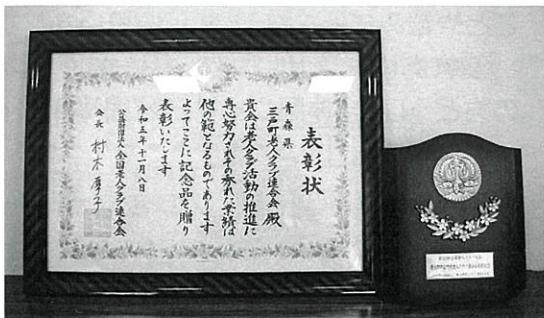 表彰状
青森県
三戸町老人クラブ連合会 殿
貴会は老人クラブ活動の推進に
専心努力されその秀れた業績は
他の範となるものであります
よってここに記念品を贈り
表彰いたします
令和五年十一月八日
公益財団法人 全国老人クラブ連合会
会長 村木厚子